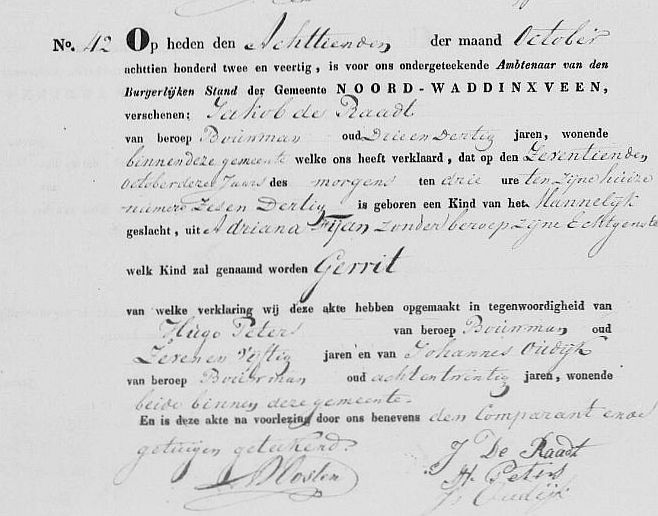 No. 42 Op heden den Achttienden der maand October
achttien honderd twee en veertig, is voor ons ondergeteekende Ambtenaar van den
Burgerlijken Stand der Gemeente NOORD-WADDINXVEEN,
verschenen: Jakob de Raadt
van beroep Bouwman oud Drie en Dertig jaren, wonende
binnen deze gemeente welke ons heeft verklaard, dat op den Zeventienden
October dezes Jaars des morgens ten drie ure ten zijne huize
numero Zes en Dertig is geboren een Kind van het Mannelyk
geslacht, uit Adriana Tijan zonder beroep zijne Echtgenote
welk Kind zal genaamd worden Gerrit
van welke verklaring wij deze akte hebben opgemaakt in tegenwoordigheid van
Hugo Peters van beroep Bouwman oud
Zeven en Vyftig jaren en van Johannes Oudyk
van beroep Bouwman oud acht en twintig jaren, wonende
beide binnen deze gemeente.
En is deze akte na voorlezing door ons benevens den Comparant en de
getuigen geteekend.
J De Raadt
H. Peters
J. Oudijk